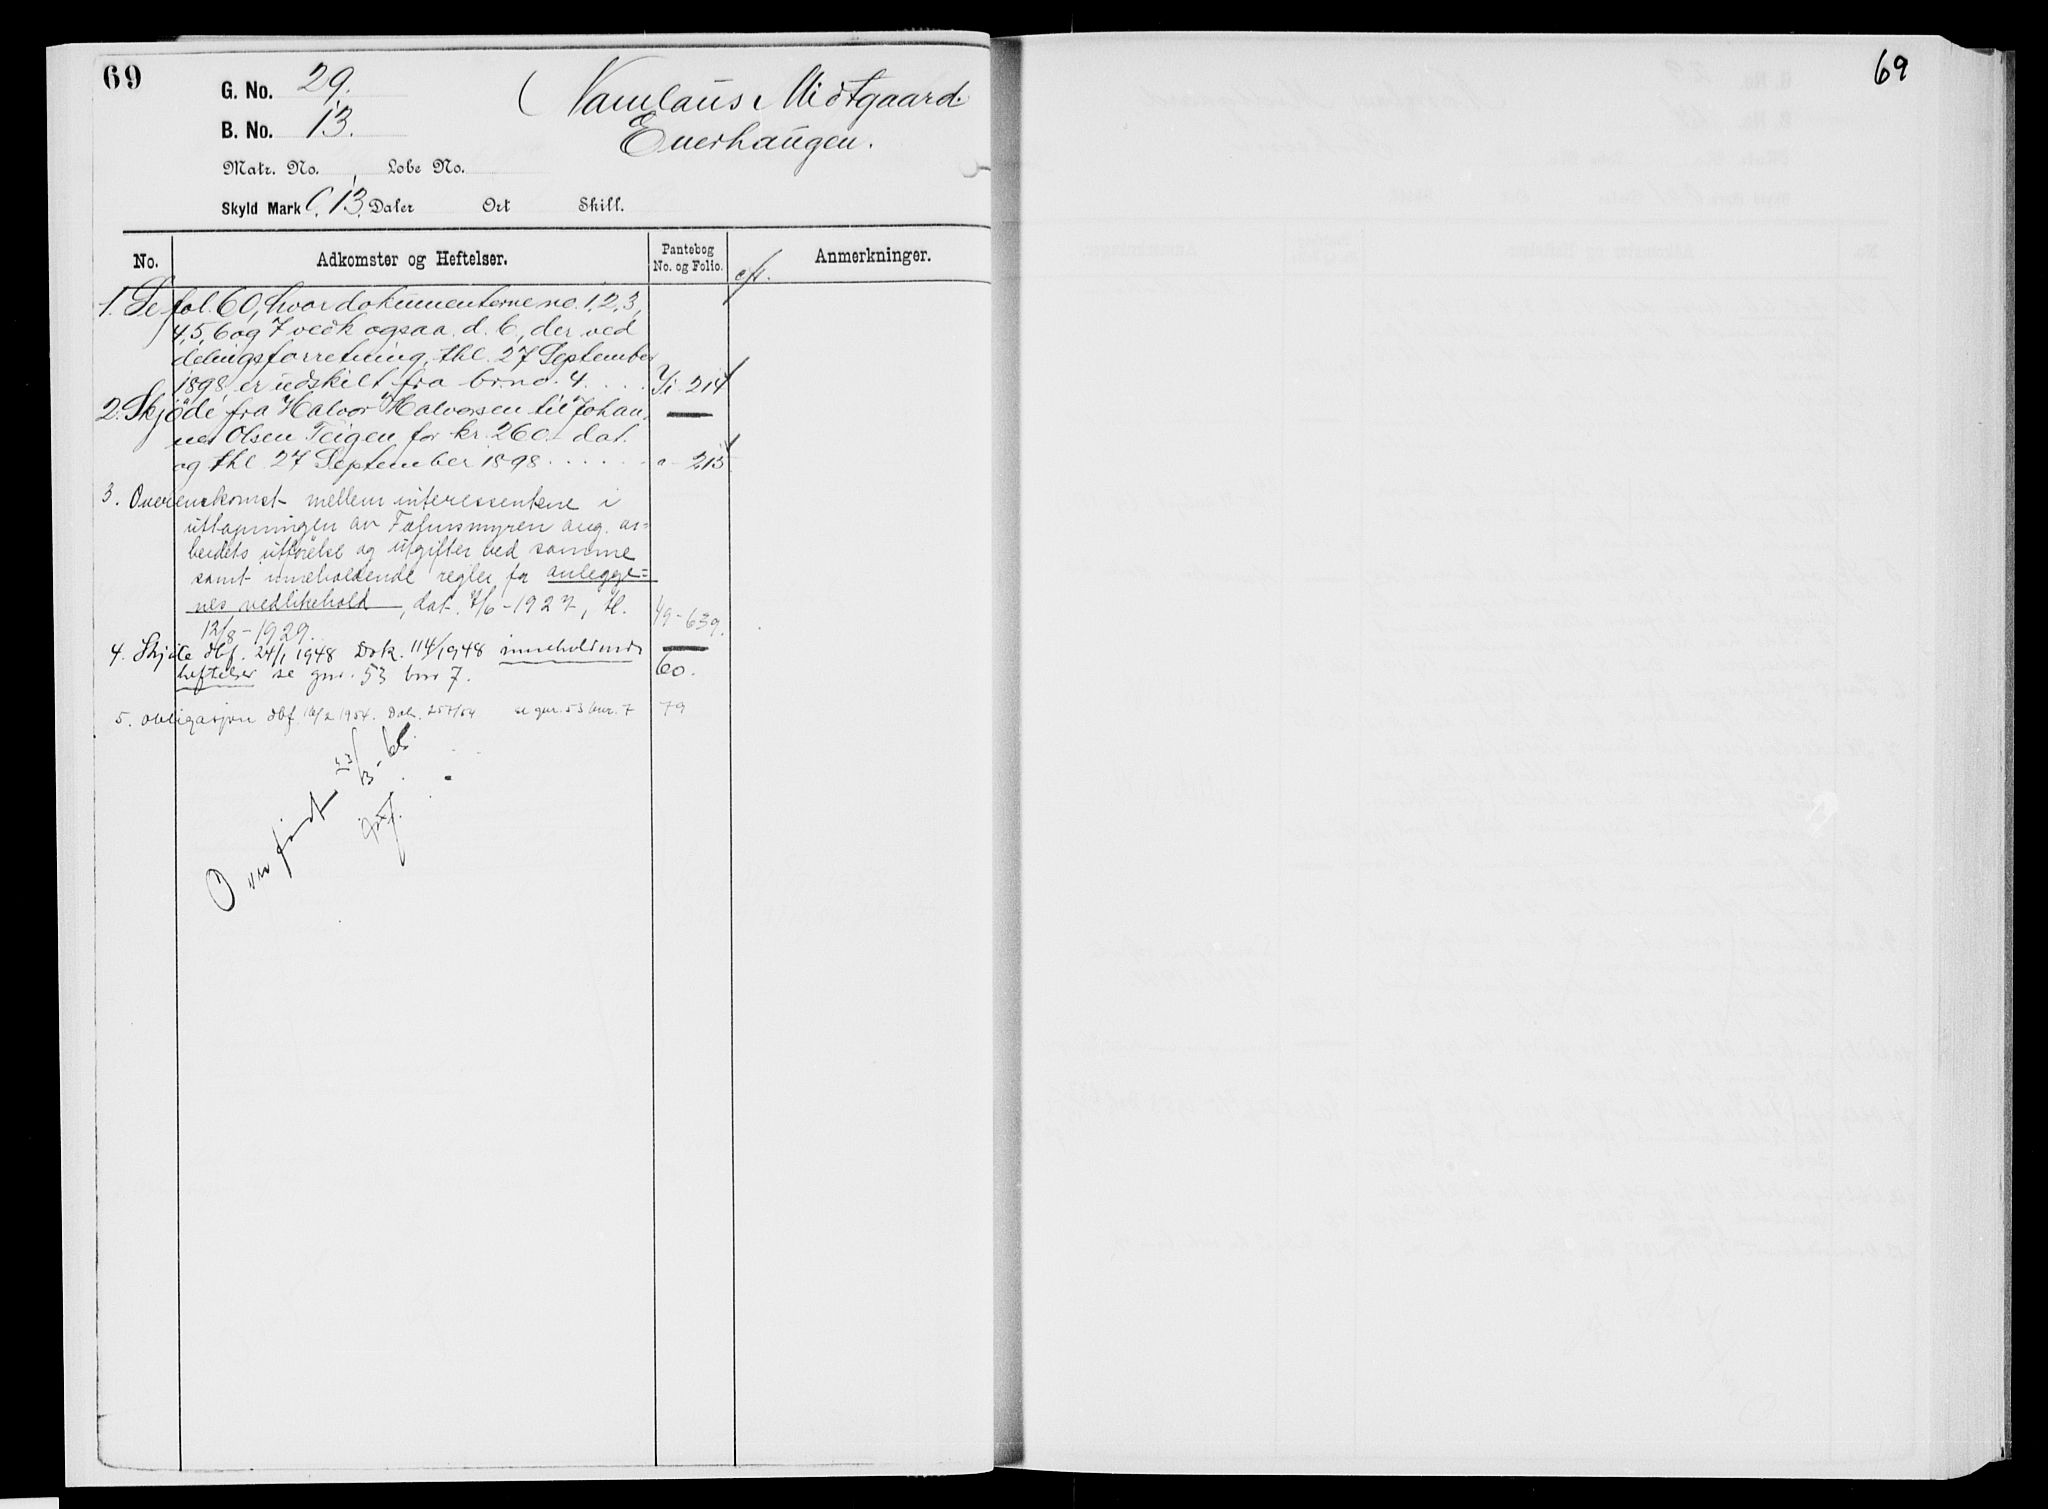 69
G. No. 29.
B. No. 13.
Matr. No. Løbe No.
Skyld Mark 0,13. Daler Ort Skill.
Namlaus Midtgaard.
Enerhaugen.
No.
Adkomster og Heftelser.
Pantebog
No. og Folio.
Anmerkninger.
1. Se fol. 60, hvor dokumenterne no. 1, 2, 3,
4, 5, 6 og 7 vedk ogsaa d. b., der ved
delingsforretning, thl. 27 September
1898, er udskilt fra br.no. 4. . . . 214
2. Skjöde fra Halvor Halvorsen til Johan-
nes Olsen Teigen for kr. 260.- dat.
og thl. 27 September 1898 . . . . . . 215
3. Overenskomst mellem interessentene i
uttapningen av ang. ar=
beidets utförelse og utgifter ved samme
samt inneholdende regler for anlegge=
nes vedlikehold, dat. 7/6-1927, tl. 49-639.
12/8-1929.
4. Skjöte dbf. 24/1 1948 Dok. 114/1948 inneholdende
heftelser se gnr. 53 bnr 7. 60.
5. Obligasjon dbf. 16/2 1954. Dok. 257/54 se gnr. 53 bnr. 7 79
Overført 23/3-
69